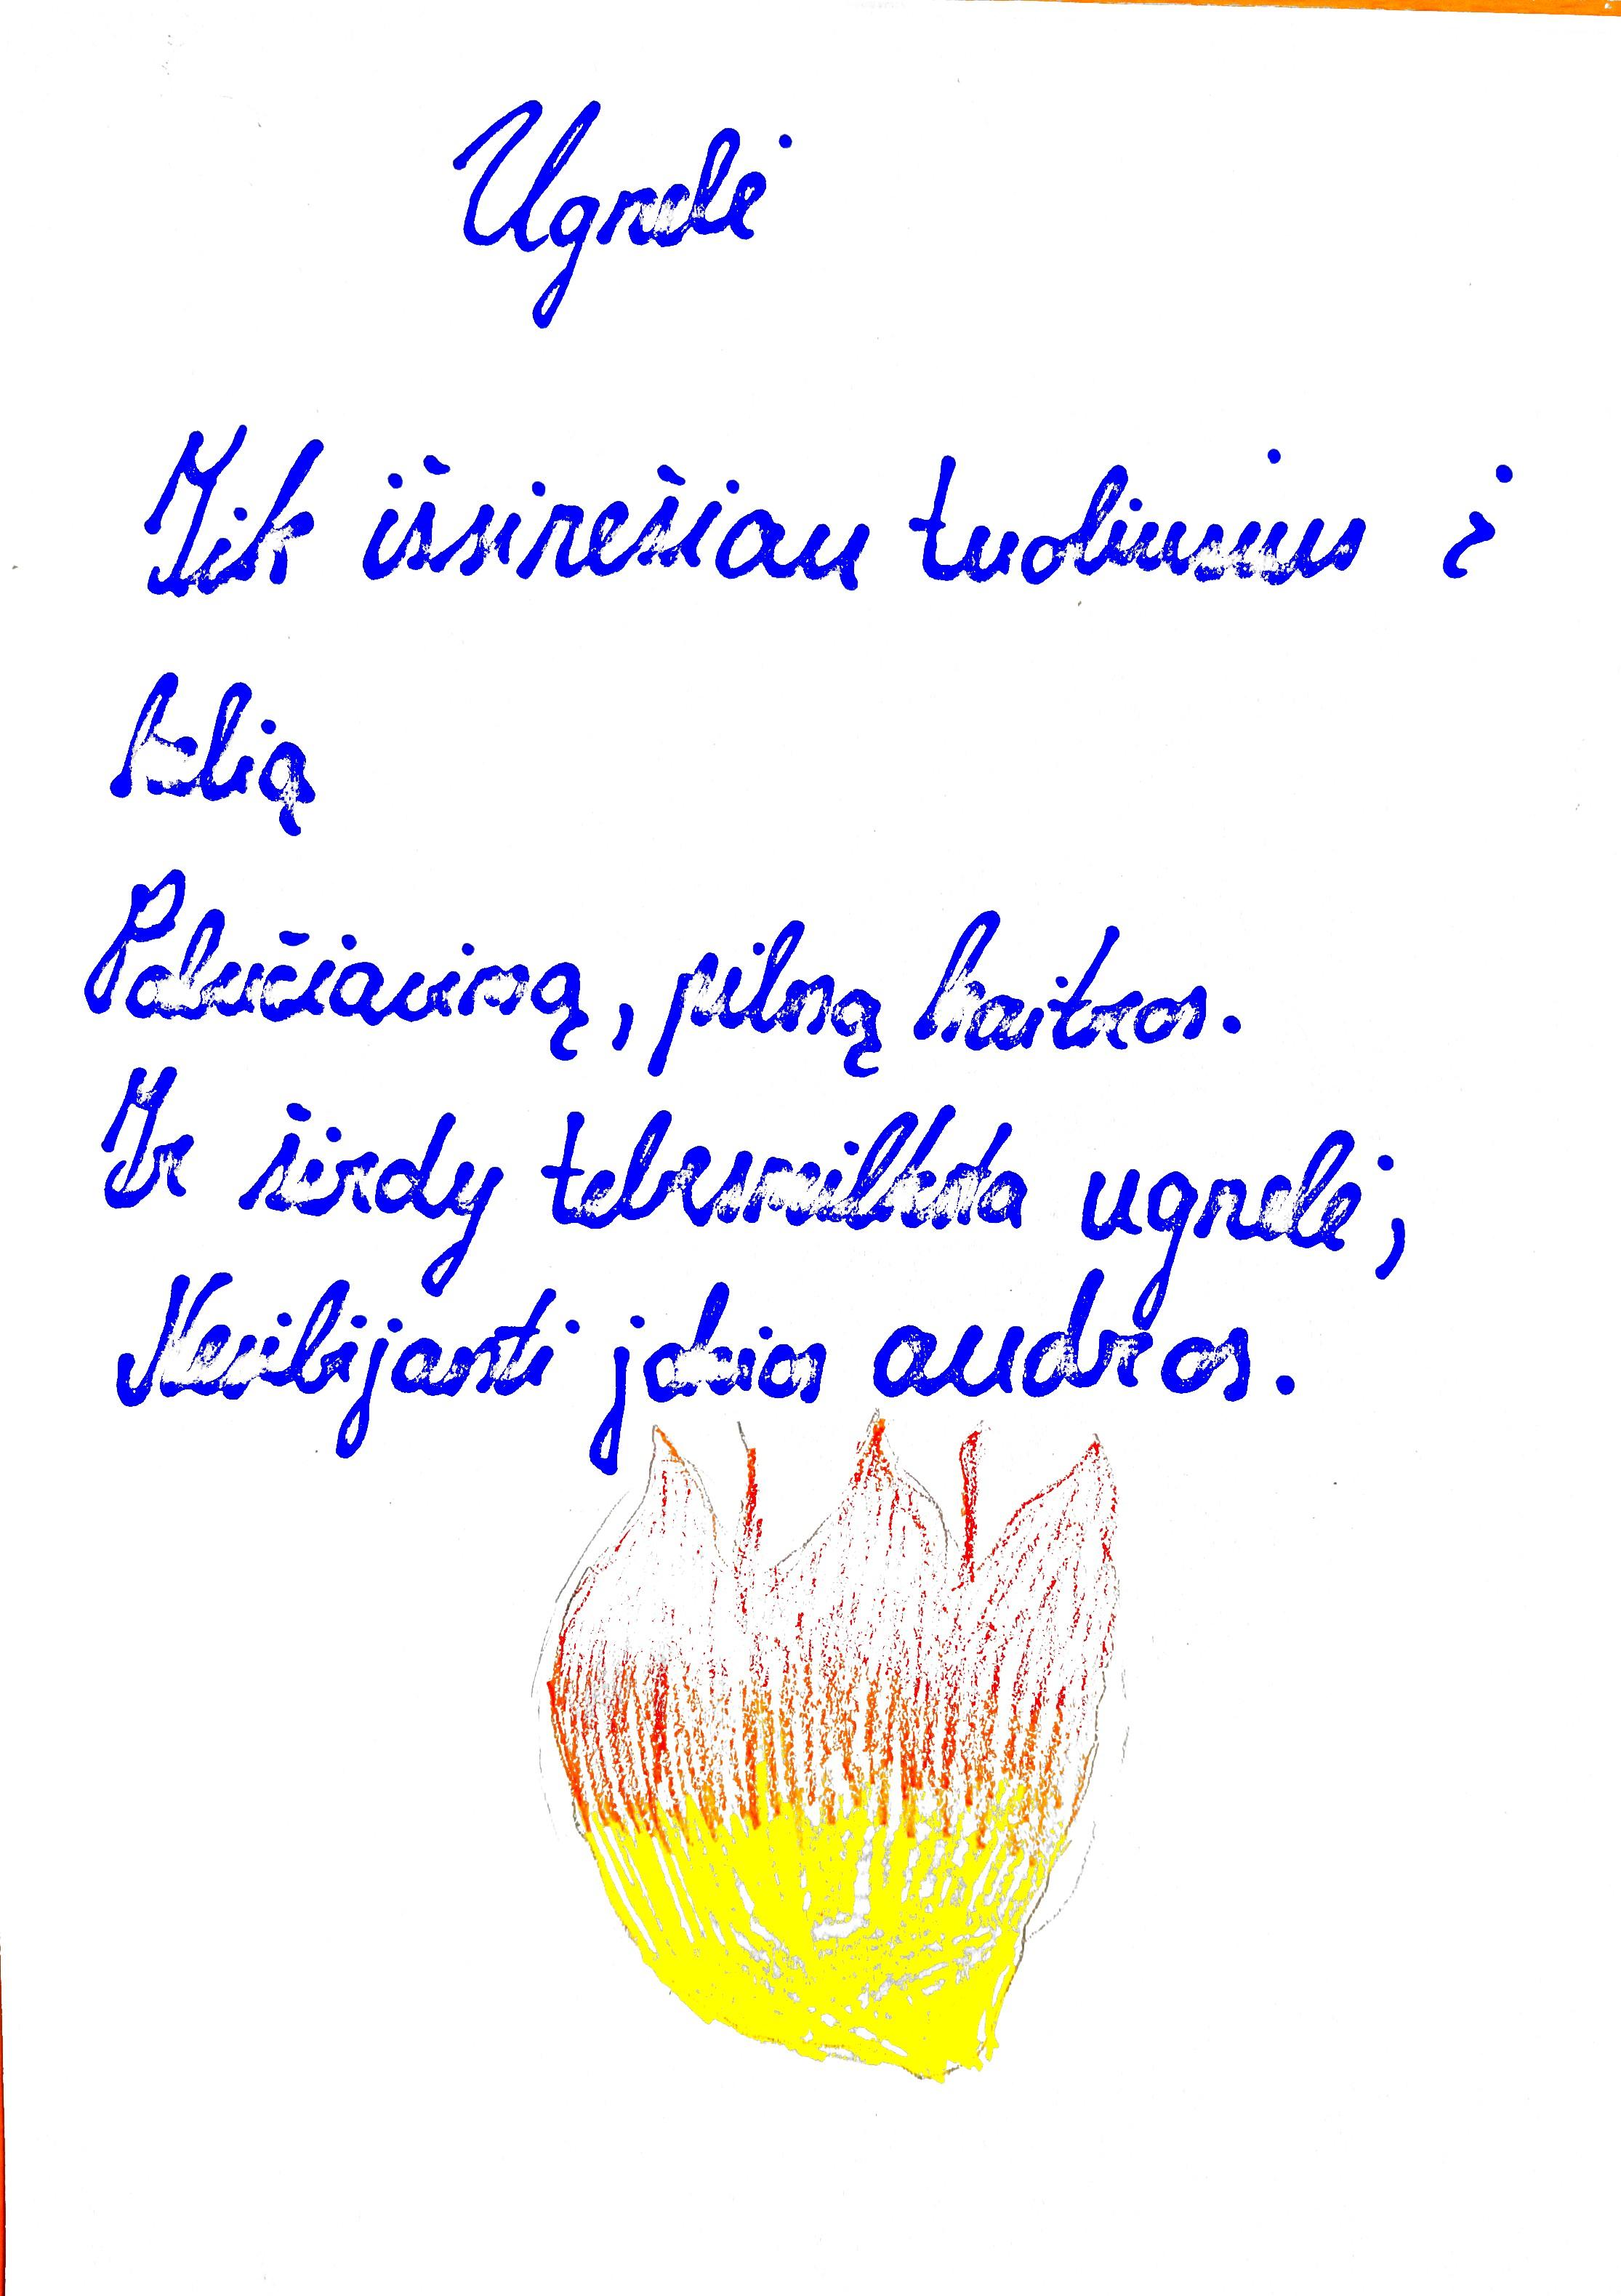 Ugnelė
Tik išsinešiau tuolinius į
kelią
Pabučiavimą, pilną kaitros.
Ir širdy tebesmilksta ugnelė,
Nenibijanti jokios audros.